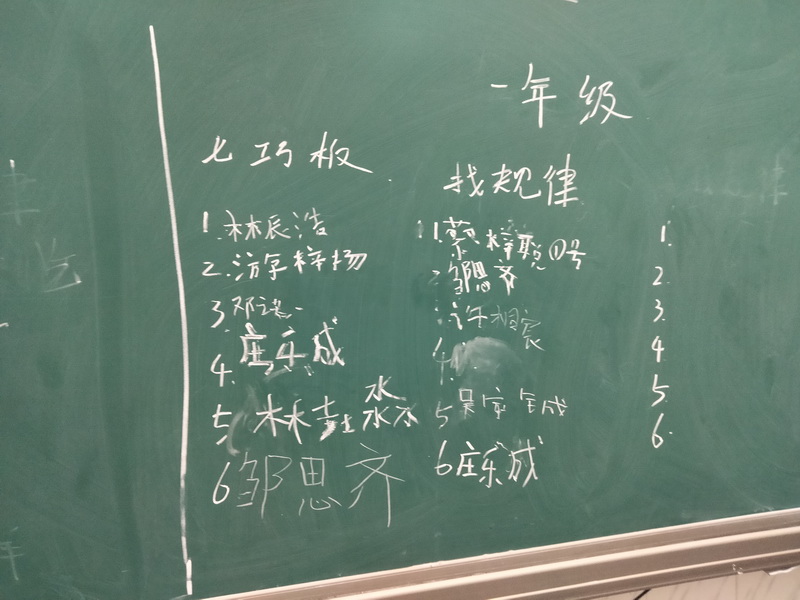 一年级
七巧板
1.林辰浩
2.游梓扬
3 邓诺一
4.庄乐成
5 林封淼
6 邹思齐
找规律
1.蔡梓聪①号
2 邹思齐
许宸
4.
5 吴宇成
6 庄乐成
1.
2.
3.
4
5
6.